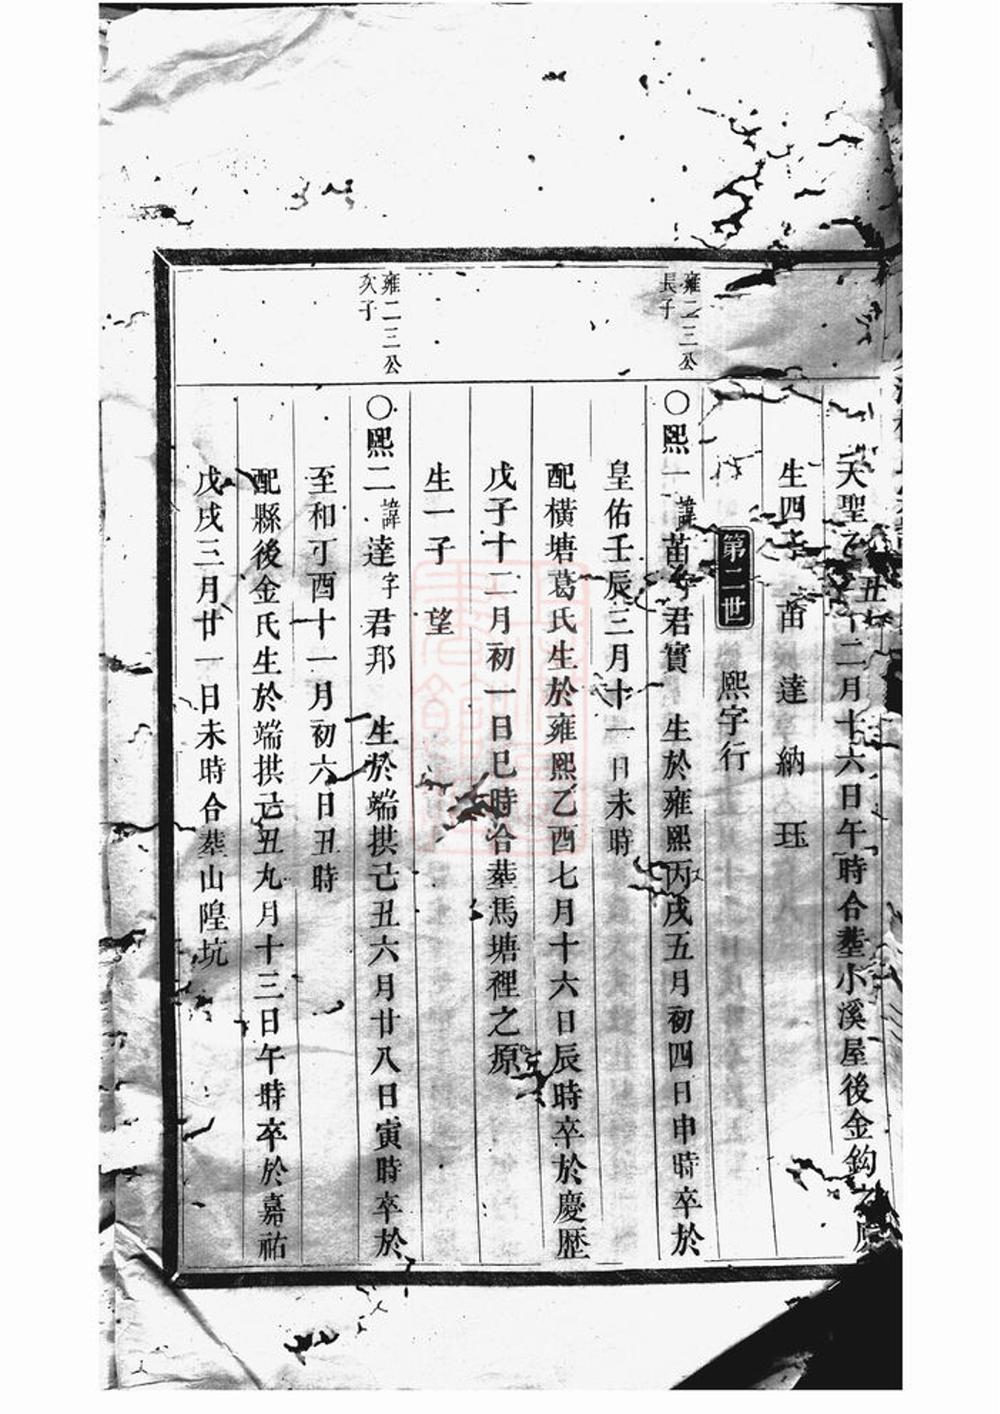 天聖乙丑十二月十六日午時合塟小溪屋後金鈎之原
生四子 苗 達 納 珏
第二世 熙字行
雍二三公
長子
〇熙一諱苗字君實 生於雍熙丙戌五月初四日申時卒於
皇佑壬辰三月十一日未時
配橫塘葛氏生於雍熙乙酉七月十六日辰時卒於慶歴
戊子十二月初一日巳時合塟馬塘裡之原
生一子 望
雍二三公
次子
〇熙二諱達字君邦 生於端拱己丑六月廿八日寅時卒於
至和丁酉十一月初六日丑時
配縣後金氏生於端拱己丑九月十三日午時卒於嘉祐
戊戌三月廿一日未時合塟山隍坑